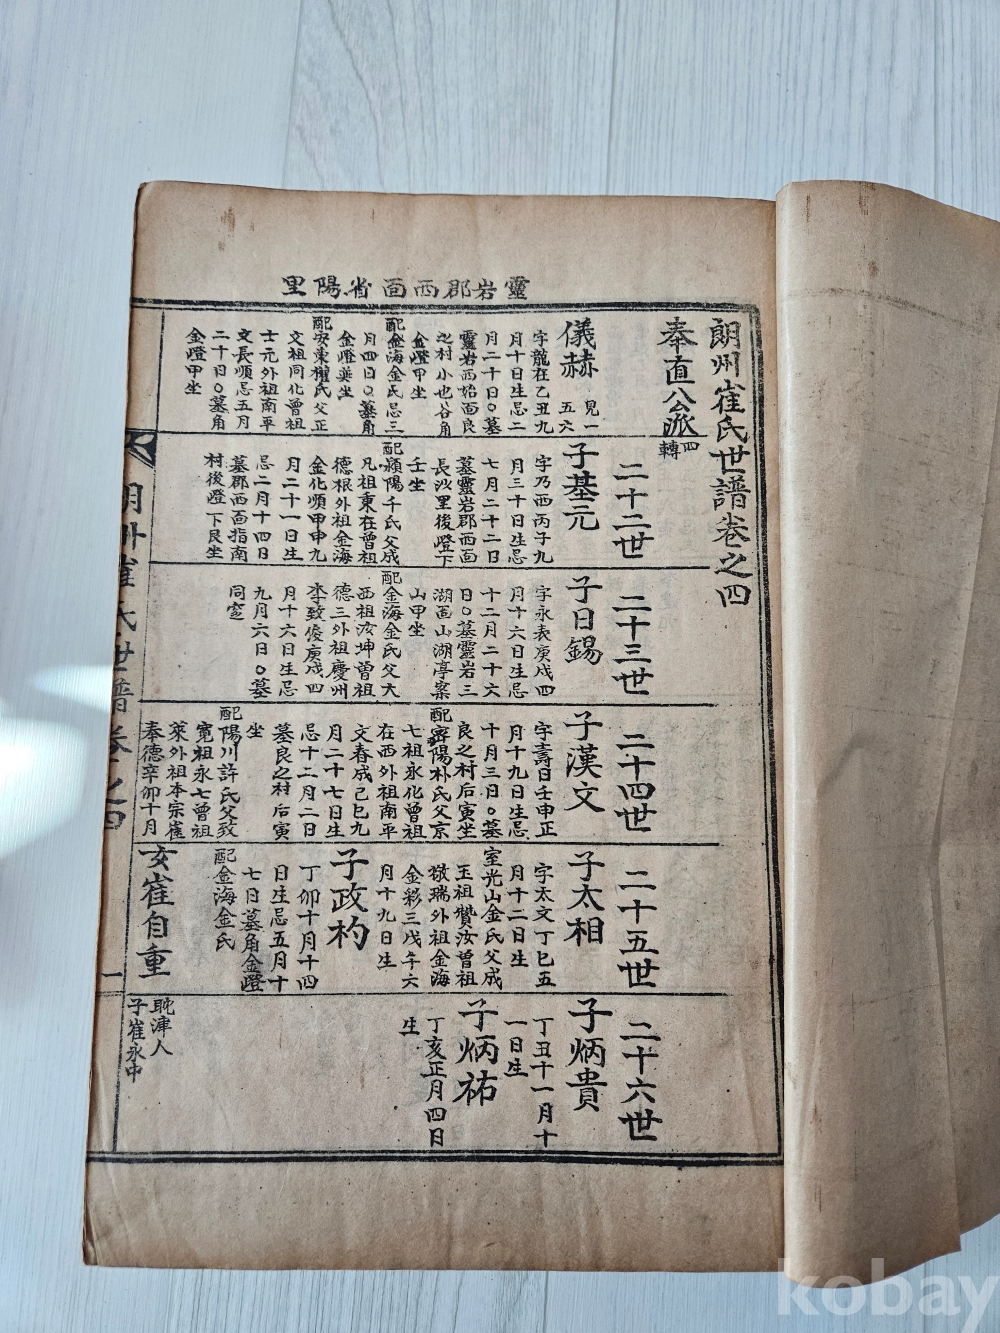 靈岩郡西面省陽里
朗州崔氏世譜卷之四
奉直公派
四
轉
儀赫
見一
五六
字龍在乙丑九
月十日生忌二
月二十日〇墓
靈岩西始面良
之村小也谷角
金燈甲坐
配金海金氏忌三
月四日〇墓角
金燈巽坐
配安東權氏父正
文祖同化曾祖
士元外祖南平
文長順忌五月
二十日〇墓角
金燈甲坐
二十二世
子基元
字乃西丙子九
月三十日生忌
七月二十二日
墓靈岩郡西面
長沙里後燈下
壬坐
配潁陽千氏父成
凡祖東在曾祖
德根外祖金海
金化順甲申九
月二十一日生
忌二月十四日
墓郡西面指南
村後燈下艮坐
二十三世
子日錫
字永表庚戌四
月十六日生忌
十二月二十六
日〇墓靈岩三
湖面山湖亭案
山甲坐
配金海金氏父大
西祖汝坤曾祖
德三外祖慶州
李致俊庚戌四
月十六日生忌
九月六日〇墓
同窆
二十四世
子漢文
字壽日壬申正
月十九日生忌
十月三日〇墓
良之村后寅坐
配密陽朴氏父京
七祖永化曾祖
在西外祖南平
文春成己巳九
月二十七日生
忌十二月二日
墓良之村后寅
坐
配陽川許氏父致
寬祖永七曾祖
萊外祖本宗崔
奉德辛卯十月
二十五世
子太相
字太文丁巳五
月十二日生
室光山金氏父成
玉祖贊汝曾祖
敬瑞外祖金海
金彩三戊午六
月十九日生
子政杓
丁卯十月十四
日生忌五月十
七日墓角金燈
配金海金氏
女崔自重
二十六世
子炳貴
丁丑十一月十
一日生
子炳祐
丁亥正月四日
生
耽津人
子崔永中
朗州崔氏世譜卷之四
一
kobay